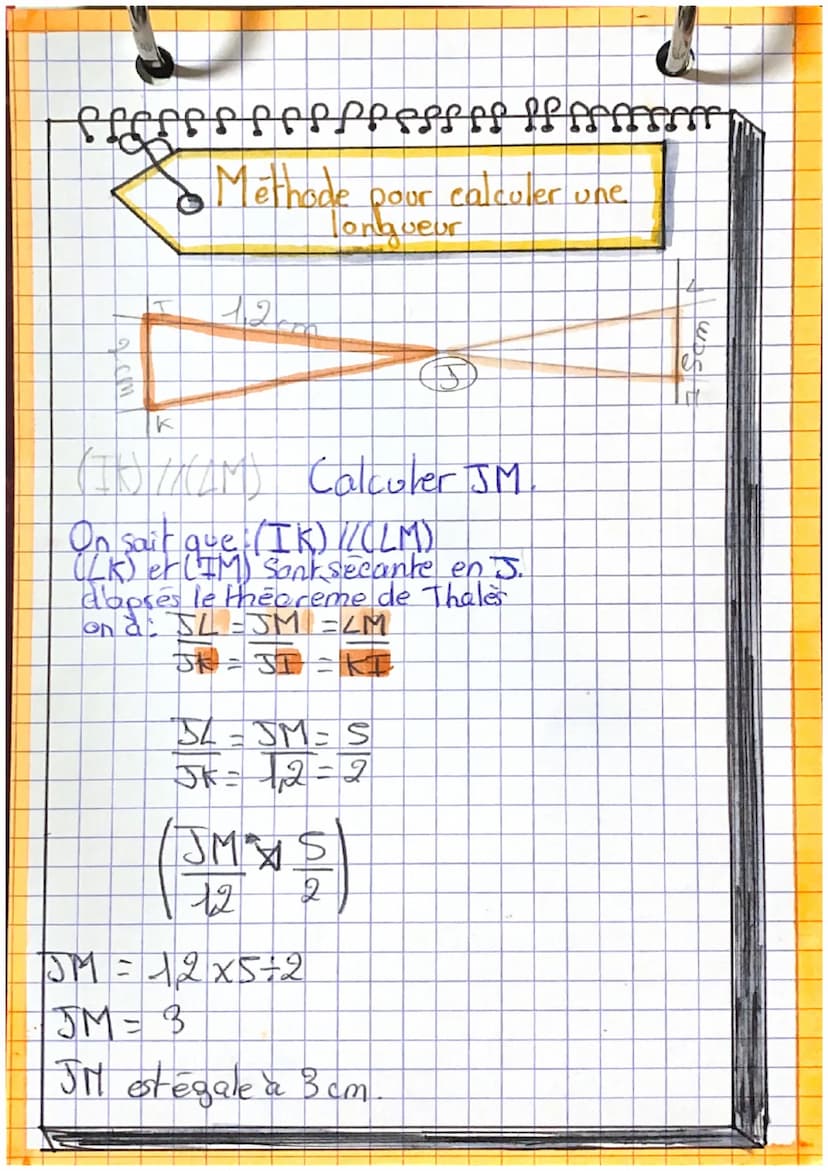 Méthode pour calculer une
longueur
I 1,2cm L
2cm J 5cm
K M
(IK)//(LM) Calculer JM.
On sait que:(IK)//(LM)
(LK) et (IM) sont sécante en J.
d'après le théoreme de Thalès
on à: JL = JM = LM
JK = JI = KI
JL = JM = 5
JK = 1,2 = 2
(JM 5)
1,2 2
JM = 1,2 x5÷2
JM = 3
JM est égale à 3cm.